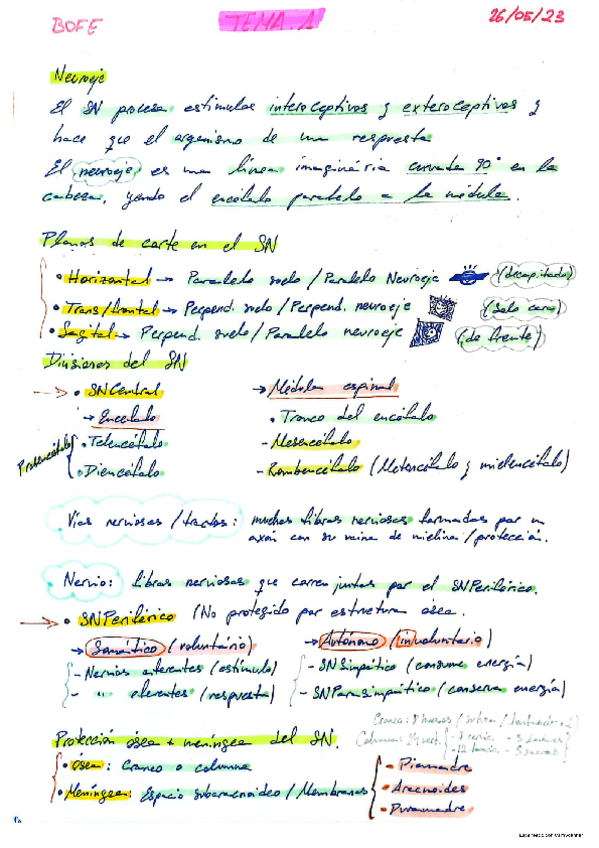 BOFE TEMA.1 26/05/23
Neuroeje
El SN procesa estímulos interoceptivos y exteroceptivos y
hace que el organismo de una respuesta
El neuroeje es una línea imaginária curvada 90° en la
cabeza, yendo el encéfalo paralelo a la médula.
Planos de corte en el SN
• Horizontal → Paralelo suelo / Paralelo Neuroeje (decapitado)
• Trans/frontal → Perpend. suelo / Perpend. neuroeje (solo cara)
• Sagital → Perpend. suelo / Paralelo neuroeje (de frente)
Divisiones del SN
→ • SN Central → Médula espinal
→ Encéfalo • Tronco del encéfalo
Prosencéfalo • Telencéfalo - Mesencéfalo
• Diencéfalo - Rombencéfalo (Metencéfalo y mielencéfalo)
Vías nerviosas / tractos: muchas fibras nerviosas formadas por un
axón con su vaina de mielina / protección.
Nervio: fibras nerviosas que corren juntas por el SNPeriférico.
→ • SNPeriférico (No protegido por estructura ósea.
→ Somático (voluntário) → Autónomo (involuntario)
- Nervios aferentes (estímulo) - SNSimpático (consume energía)
- " eferentes (respuesta) - SNParasimpático (conserva energía)
Cranea: 8 huesos
Protección ósea + meníngea del SN. Columna: 24 vert. - 7 cervic. - 5 lumbares
- 12 torácic.
• Osea: Craneo o columna - Piamadre
• Meníngea: Espacio subaracnoideo / Membranas - Aracnoides
- Duramadre